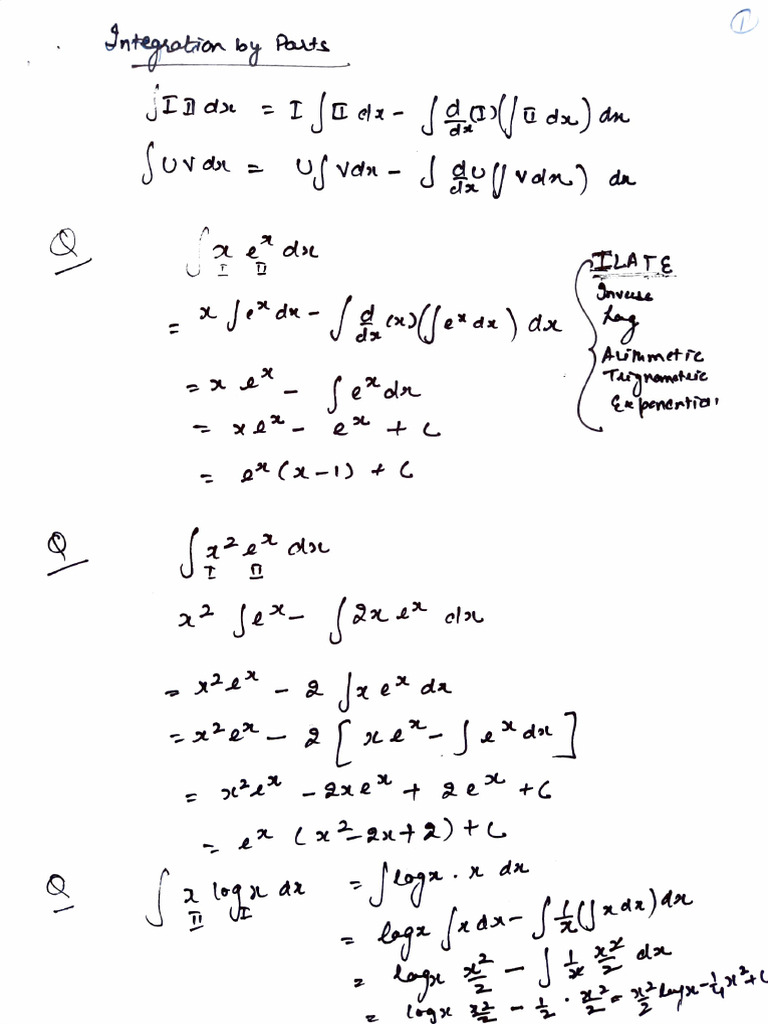 1
Integration by Parts
∫ I II dx = I ∫ II dx - ∫ d/dx (I) (∫ II dx) dx
∫ U V dx = U ∫ V dx - ∫ dU/dx (∫ V dx) dx
Q ∫ x e^x dx
I II
= x ∫ e^x dx - ∫ d/dx (x) (∫ e^x dx) dx
= x e^x - ∫ e^x dx
= x e^x - e^x + C
= e^x (x-1) + C
ILATE
Inverse
Log
Arithmetic
Trignometric
Exponential
Q ∫ x² e^x dx
I II
x² ∫ e^x - ∫ 2x e^x dx
= x² e^x - 2 ∫ x e^x dx
= x² e^x - 2 [ x e^x - ∫ e^x dx ]
= x² e^x - 2x e^x + 2 e^x + C
= e^x (x² - 2x + 2) + C
Q ∫ x log x dx = ∫ log x . x dx
II I
= log x ∫ x dx - ∫ 1/x (∫ x dx) dx
= log x x²/2 - ∫ 1/x x²/2 dx
= log x x²/2 - 1/2 . x²/2 = x²/2 log x - 1/4 x² + C